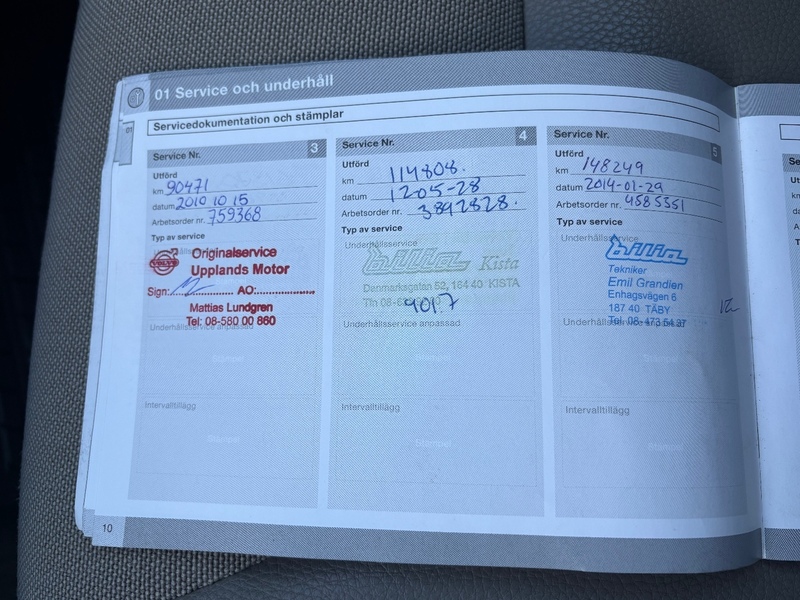 01 Service och underhåll
Servicedokumentation och stämplar
Service Nr. 3
Utförd
km 90471
datum 2010 10 15
Arbetsorder nr. 759368
Typ av service
VOLVO
Originalservice
Upplands Motor
Sign: AO:
Mattias Lundgren
Tel: 08-580 00 860
Underhållsservice anpassad
Stämpel
Intervalltillägg
Stämpel
Service Nr. 4
Utförd
km 114808.
datum 12-05-28
Arbetsorder nr. 3892828.
Typ av service
Underhållsservice
bilia Kista
Danmarksgatan 52, 164 40 KISTA
Tfn 08-
9017
Underhållsservice anpassad
Stämpel
Intervalltillägg
Stämpel
Service Nr. 5
Utförd
km 148249
datum 2014-01-29
Arbetsorder nr. 4585351
Typ av service
Underhållsservice
bilia
Tekniker
Emil Grandien
Enhagsvägen 6
187 40 TÄBY
Tel. 08-473 54 37
Underhållsservice anpassad
Stämpel
Intervalltillägg
Stämpel
10